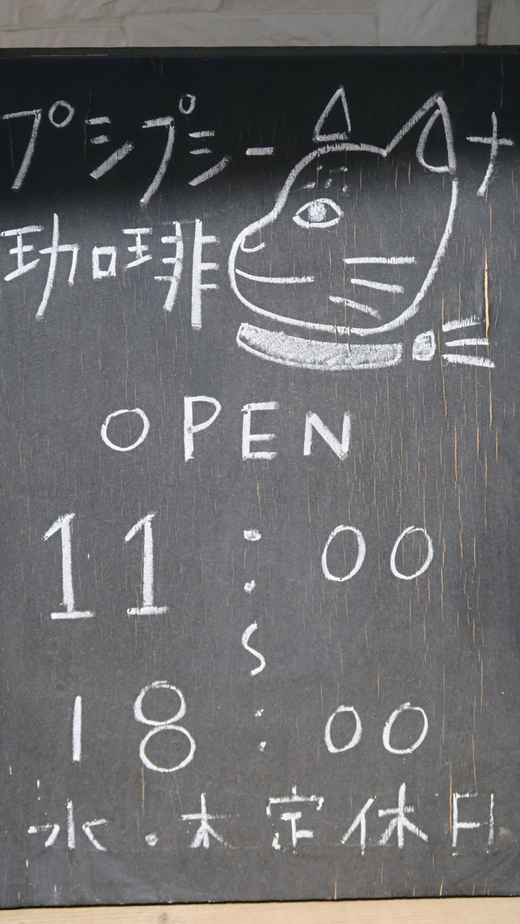 プシプシーナ
珈琲
OPEN
11:00
〜
18:00
水・木 定休日